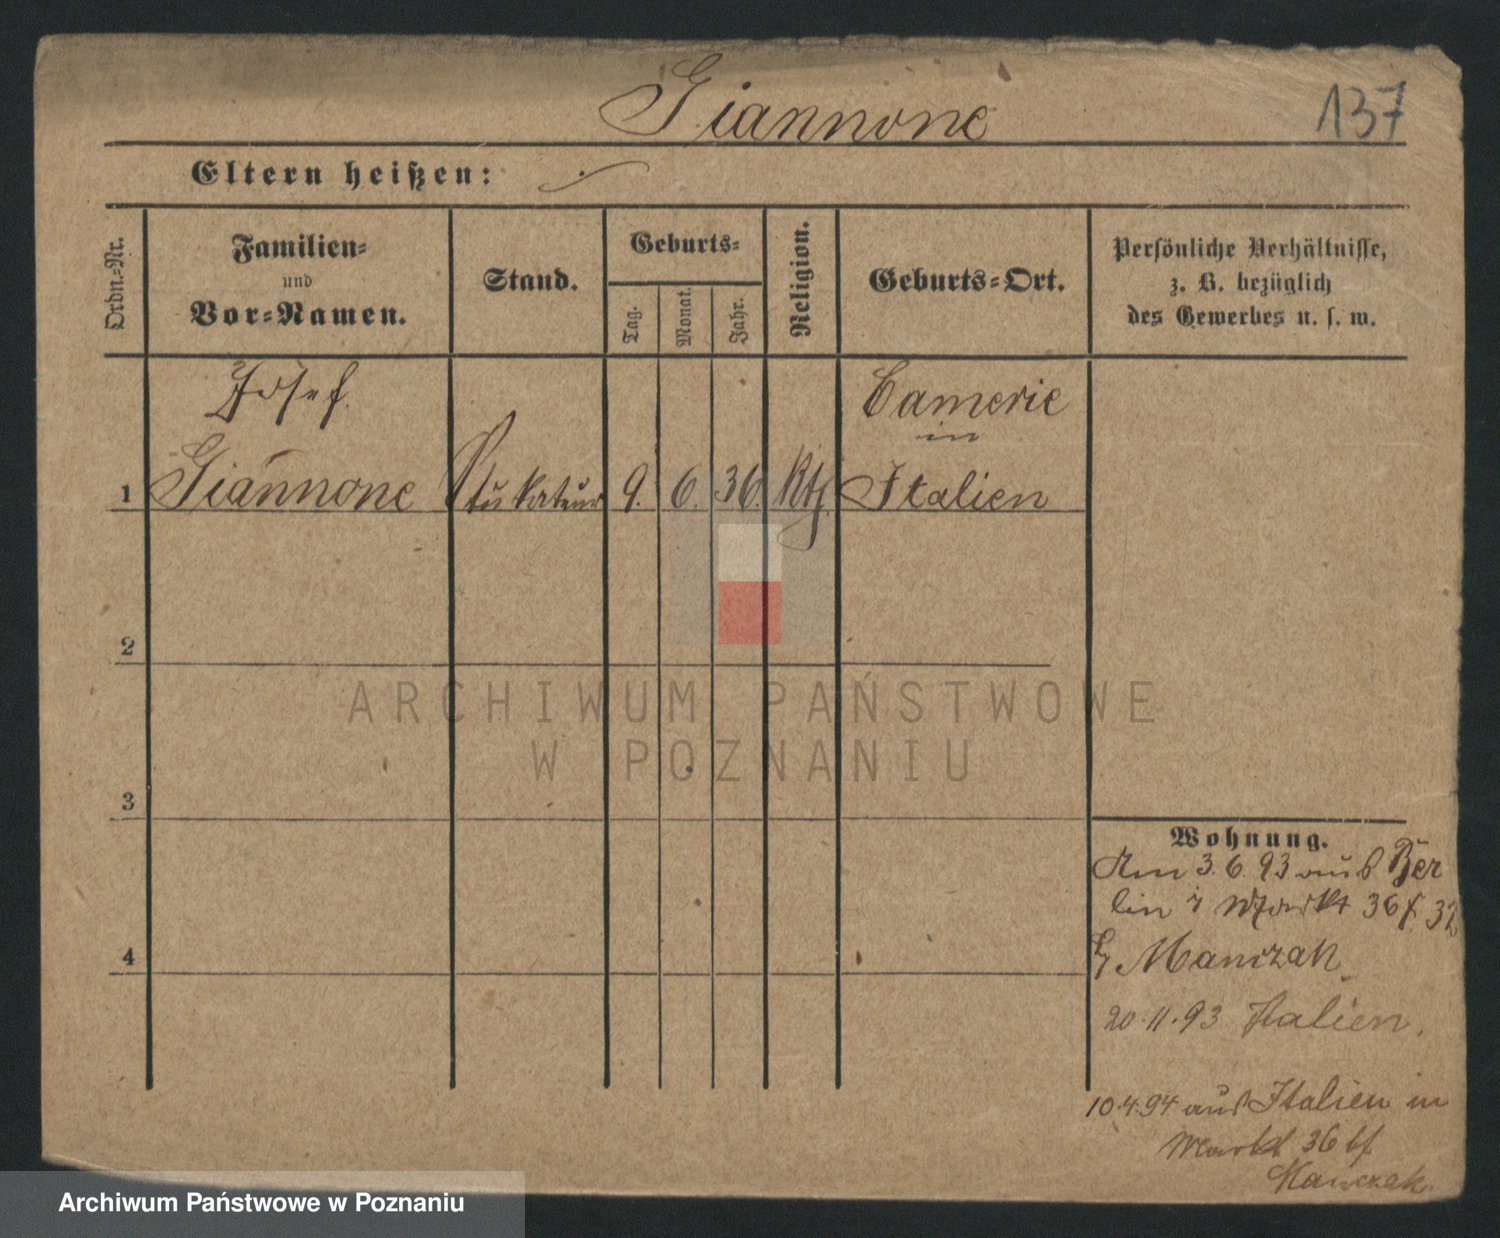 Giannone
137
Eltern heißen:
Ordn.-Nr.
Familien-
und
Vor-Namen.
Stand.
Geburts-
Tag.
Monat.
Jahr.
Religion.
Geburts-Ort.
Persönliche Verhältnisse,
z. B. bezüglich
des Gewerbes u. s. w.
Josef
Camerie
in
1 Giannone Stukateur 9. 6. 36. Kth. Italien
2
ARCHIWUM PAŃSTWOWE
W POZNANIU
3
Wohnung.
Am 3.6.93 aus Ber
lin Markt 36
4
Manczak
20.11.93 Italien.
10.4.94 aus Italien in
Markt 36 bf
Manczak
Archiwum Państwowe w Poznaniu